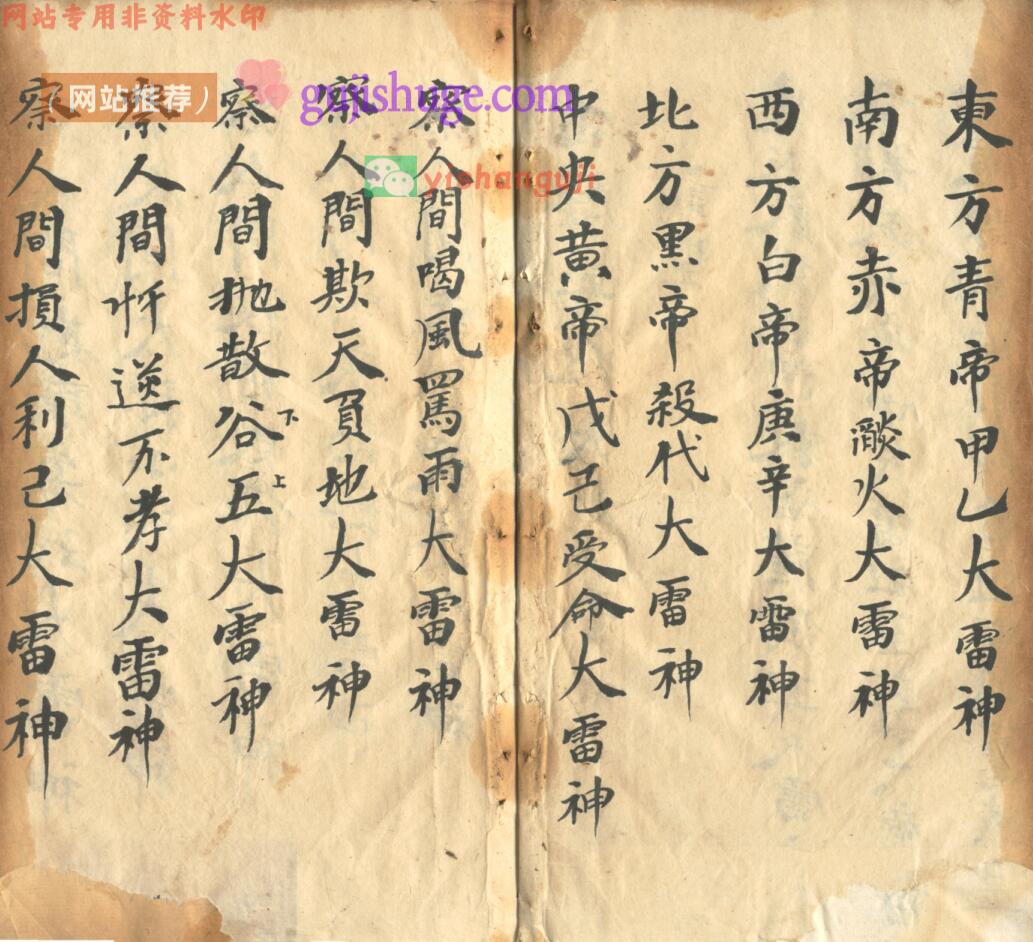 東方青帝甲乙大雷神
南方赤帝燄火大雷神
西方白帝庚辛大雷神
北方黑帝殺伐大雷神
中央黃帝戊己受命大雷神
察人間喝風罵雨大雷神
察人間欺天負地大雷神
察人間拋散谷下五上大雷神
察人間忤逆不孝大雷神
察人間損人利己大雷神
网站专用非资料水印
(网站推荐)
gujishuge.com
yishanguji